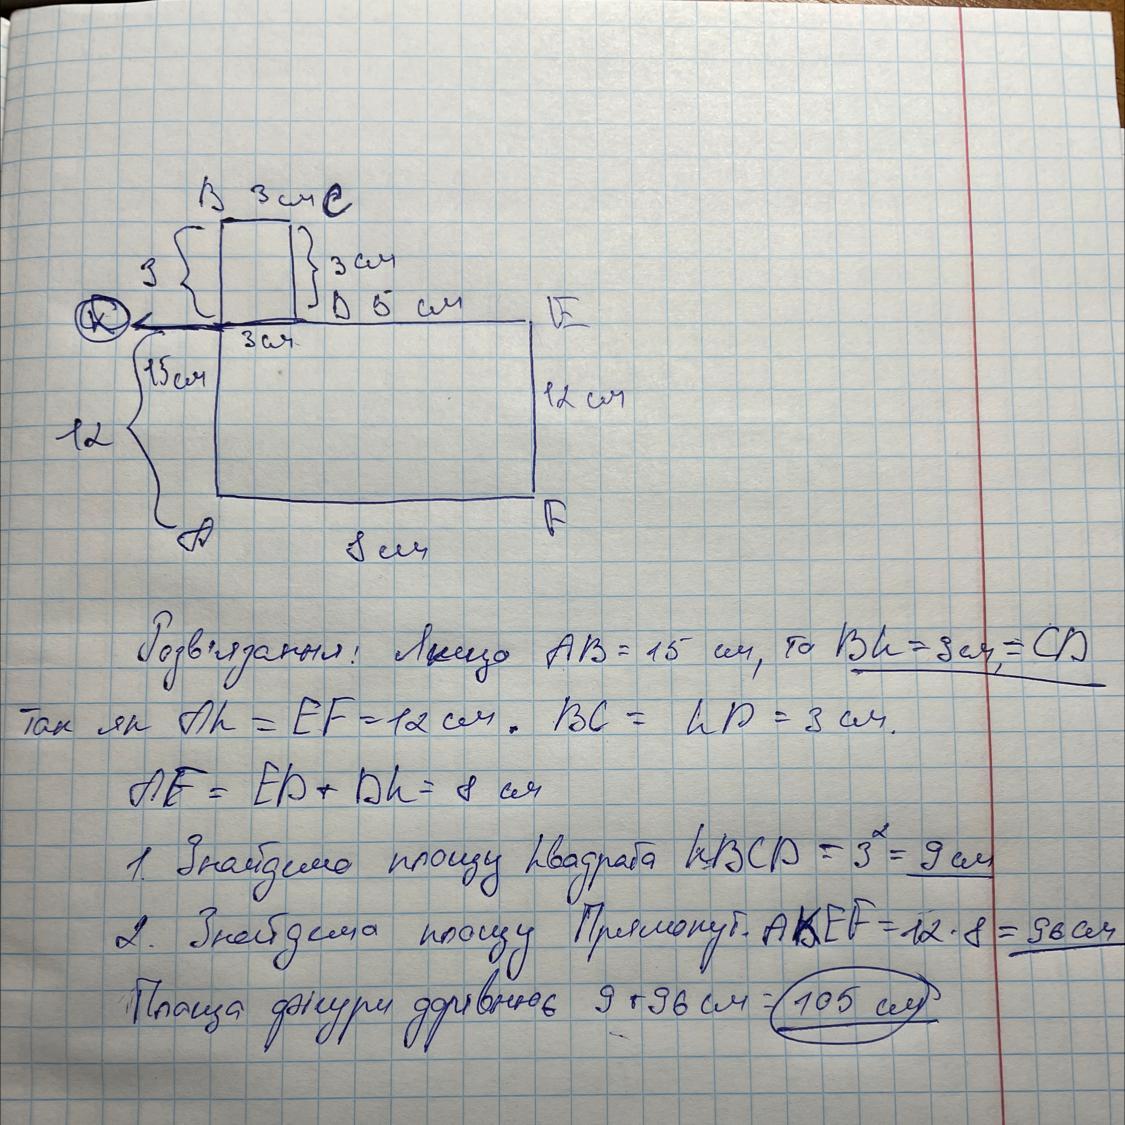 B 3 см C
3
3 см
D 5 см E
K
3см
15см
12 см
12
A
F
8 см
Розв'язання: Якщо AB = 15 см, то BK = 3см, = CD
Так як AK = EF = 12 см. BC = KD = 3 см.
AF = ED + DK = 8 см
1. Знайдемо площу квадрата KBCD = 3² = 9 см
2. Знайдемо площу Прямокут. AKEF = 12 · 8 = 96 см
Площа фігури дорівнює 9 + 96 см = 105 см²